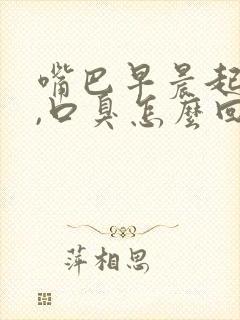 嘴巴早晨起
,口臭怎麽回
萍相思